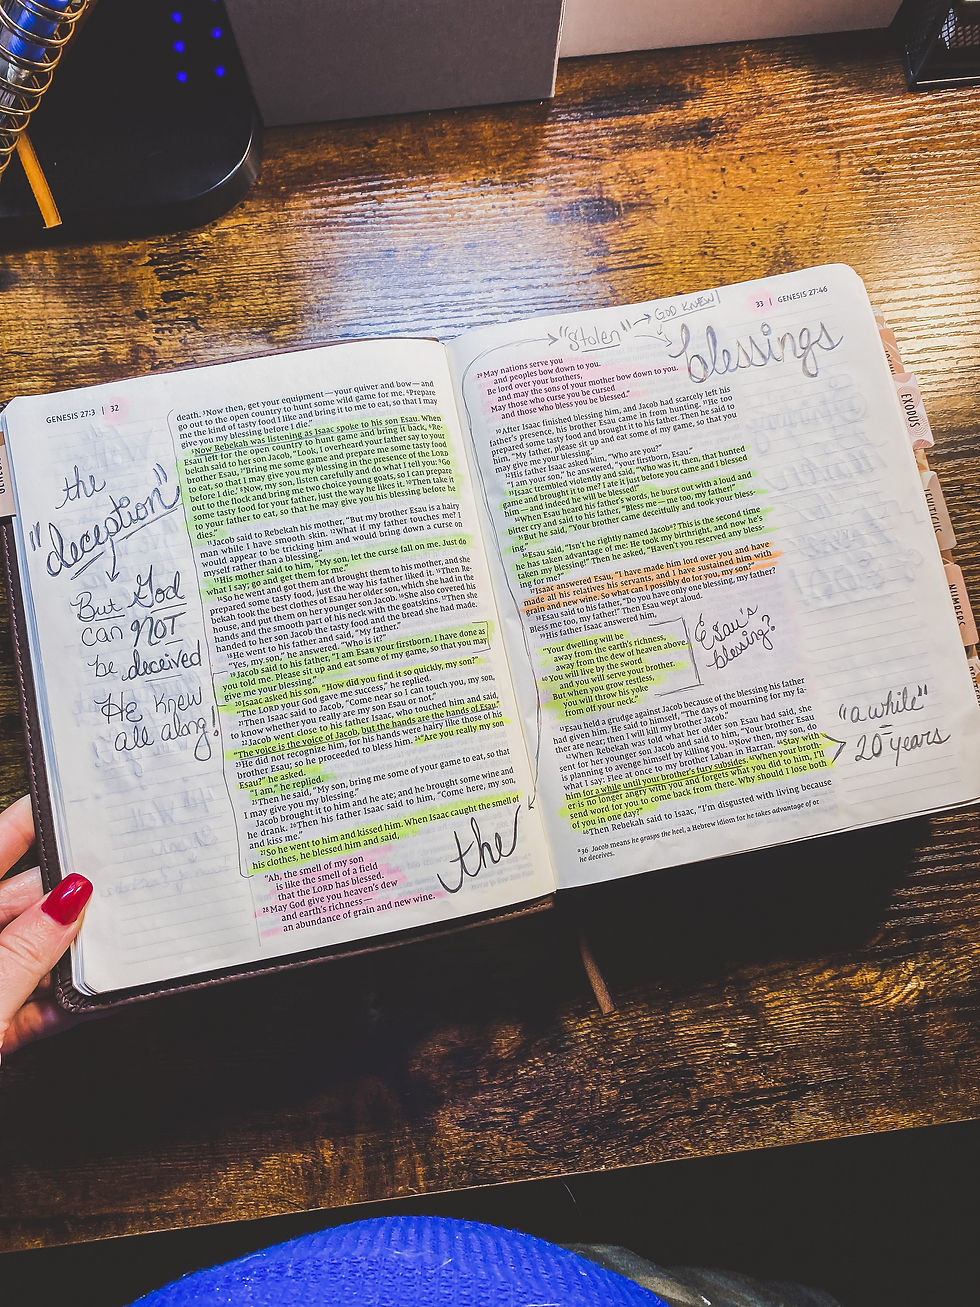 GENESIS 27:3 | 32
the
"deception"
But God
can NOT
be deceived
He knew
all along!
death. ³Now then, get your equipment—your quiver and bow—and
go out to the open country to hunt some wild game for me. ⁴Prepare
me the kind of tasty food I like and bring it to me to eat, so that I may
give you my blessing before I die."
⁵Now Rebekah was listening as Isaac spoke to his son Esau. When
Esau left for the open country to hunt game and bring it back, ⁶Re-
bekah said to her son Jacob, "Look, I overheard your father say to your
brother Esau, ⁷'Bring me some game and prepare me some tasty food
to eat, so that I may give you my blessing in the presence of the LORD
before I die.' ⁸Now, my son, listen carefully and do what I tell you: ⁹Go
out to the flock and bring me two choice young goats, so I can prepare
some tasty food for your father, just the way he likes it. ¹⁰Then take it
to your father to eat, so that he may give you his blessing before he
dies."
¹¹Jacob said to Rebekah his mother, "But my brother Esau is a hairy
man while I have smooth skin. ¹²What if my father touches me? I
would appear to be tricking him and would bring down a curse on
myself rather than a blessing."
¹³His mother said to him, "My son, let the curse fall on me. Just do
what I say; go and get them for me."
¹⁴So he went and got them and brought them to his mother, and she
prepared some tasty food, just the way his father liked it. ¹⁵Then Re-
bekah took the best clothes of Esau her older son, which she had in the
house, and put them on her younger son Jacob. ¹⁶She also covered his
hands and the smooth part of his neck with the goatskins. ¹⁷Then she
handed to her son Jacob the tasty food and the bread she had made.
¹⁸He went to his father and said, "My father."
"Yes, my son," he answered. "Who is it?"
¹⁹Jacob said to his father, "I am Esau your firstborn. I have done as
you told me. Please sit up and eat some of my game, so that you may
give me your blessing."
²⁰Isaac asked his son, "How did you find it so quickly, my son?"
"The LORD your God gave me success," he replied.
²¹Then Isaac said to Jacob, "Come near so I can touch you, my son,
to know whether you really are my son Esau or not."
²²Jacob went close to his father Isaac, who touched him and said,
"The voice is the voice of Jacob, but the hands are the hands of Esau."
²³He did not recognize him, for his hands were hairy like those of his
brother Esau; so he proceeded to bless him. ²⁴"Are you really my son
Esau?" he asked.
"I am," he replied.
²⁵Then he said, "My son, bring me some of your game to eat, so that
I may give you my blessing."
Jacob brought it to him and he ate; and he brought some wine and
he drank. ²⁶Then his father Isaac said to him, "Come here, my son,
and kiss me."
²⁷So he went to him and kissed him. When Isaac caught the smell of
his clothes, he blessed him and said,
"Ah, the smell of my son
is like the smell of a field
that the LORD has blessed.
²⁸May God give you heaven's dew
and earth's richness—
an abundance of grain and new wine.
the
33 | GENESIS 27:46
"Stolen" → GOD KNEW!
blessings
²⁹May nations serve you
and peoples bow down to you.
Be lord over your brothers,
and may the sons of your mother bow down to you.
May those who curse you be cursed
and those who bless you be blessed."
³⁰After Isaac finished blessing him, and Jacob had scarcely left his
father's presence, his brother Esau came in from hunting. ³¹He too
prepared some tasty food and brought it to his father. Then he said to
him, "My father, please sit up and eat some of my game, so that you
may give me your blessing."
³²His father Isaac asked him, "Who are you?"
"I am your son," he answered, "your firstborn, Esau."
³³Isaac trembled violently and said, "Who was it, then, that hunted
game and brought it to me? I ate it just before you came and I blessed
him—and indeed he will be blessed!"
³⁴When Esau heard his father's words, he burst out with a loud and
bitter cry and said to his father, "Bless me—me too, my father!"
³⁵But he said, "Your brother came deceitfully and took your bless-
ing."
³⁶Esau said, "Isn't he rightly named Jacobᵃ? This is the second time
he has taken advantage of me: He took my birthright, and now he's
taken my blessing!" Then he asked, "Haven't you reserved any bless-
ing for me?"
³⁷Isaac answered Esau, "I have made him lord over you and have
made all his relatives his servants, and I have sustained him with
grain and new wine. So what can I possibly do for you, my son?"
³⁸Esau said to his father, "Do you have only one blessing, my father?
Bless me too, my father!" Then Esau wept aloud.
³⁹His father Isaac answered him,
"Your dwelling will be
away from the earth's richness,
away from the dew of heaven above.
⁴⁰You will live by the sword
and you will serve your brother.
But when you grow restless,
you will throw his yoke
from off your neck."
Esau's
blessing?
⁴¹Esau held a grudge against Jacob because of the blessing his father
had given him. He said to himself, "The days of mourning for my fa-
ther are near; then I will kill my brother Jacob."
⁴²When Rebekah was told what her older son Esau had said, she
sent for her younger son Jacob and said to him, "Your brother Esau
is planning to avenge himself by killing you. ⁴³Now then, my son, do
what I say: Flee at once to my brother Laban in Harran. ⁴⁴Stay with
him for a while until your brother's fury subsides. ⁴⁵When your broth-
er is no longer angry with you and forgets what you did to him, I'll
send word for you to come back from there. Why should I lose both
of you in one day?"
⁴⁶Then Rebekah said to Isaac, "I'm disgusted with living because
"a while"
=
20 years
ᵃ 36 Jacob means he grasps the heel, a Hebrew idiom for he takes advantage of or
he deceives.
EXODUS
LEVITICUS
NUMBERS